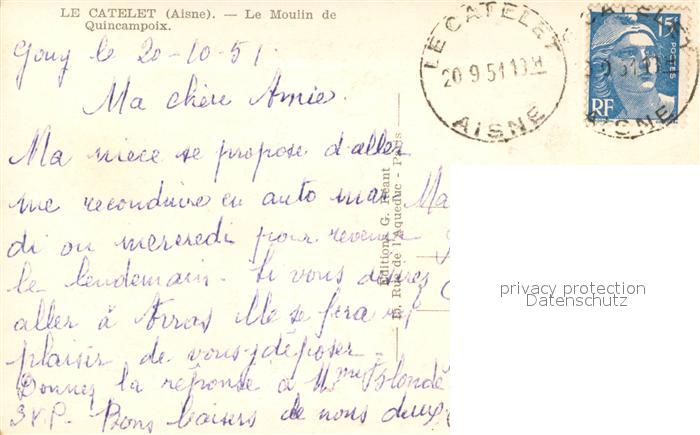 LE CATELET (Aisne). — Le Moulin de
Quincampoix.
LE CATELET
20 9 51 13H
AISNE
CATELET
9 51 13H
AISNE
15F
POSTES
RF
Gouy le 20-10-51.
Ma chère Amie.
Ma niece se propose d'aller
me reconduire en auto mar Ma
di ou mercredi pour revenir
le lendemain. Si vous désirez
aller à Arras elle se fera un
plaisir de vous y déposer
Donnez la réponse à Mme Blondé
S.V.P. Bons baisers de nous deux
Editions G. Réant
Rue de l'Aqueduc - Paris
privacy protection
Datenschutz